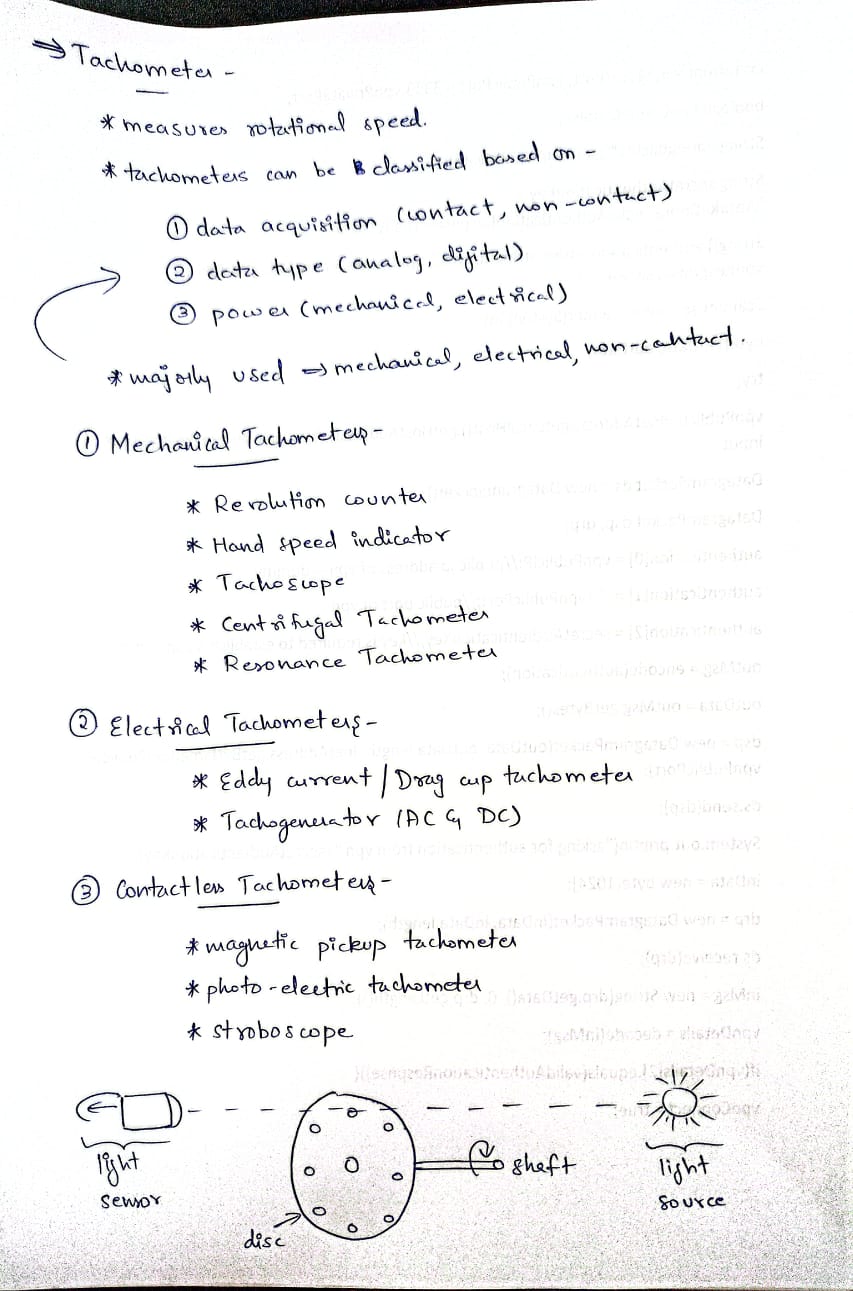 ⇒ Tachometer -
* measures rotational speed.
* tachometers can be classified based on -
① data acquisition (contact, non-contact)
② data type (analog, digital)
③ power (mechanical, electrical)
* majorly used ⇒ mechanical, electrical, non-contact.
① Mechanical Tachometers -
* Revolution counter
* Hand speed indicator
* Tachoscope
* Centrifugal Tachometer
* Resonance Tachometer
② Electrical Tachometers -
* Eddy current / Drag cup tachometer
* Tachogenerator (AC & DC)
③ Contactless Tachometers -
* magnetic pickup tachometer
* photo-electric tachometer
* stroboscope
light sensor
disc
shaft
light source